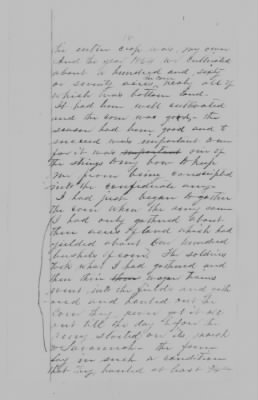 the entire crop was my own
And the year 1864 we Cultivated
about a hundred and sixty
or seventy acres the corn nearly all of
which was bottom land.
It had been well cultivated
and the corn was good, the
season had been good and to
succeed was important
for it was important one of
the strings to my bow to keep
me from being conscripted
into the confederate army.
I had just began to gather
the corn when the army came
I had only gathered about
three acres of land which had
yielded about two hundred
bushels of corn. The soldiers
took what I had gathered and
then their wagon trains
went into the fields and
and and hauled out the
corn they never got it
out till the day before the
army started on its march
to Savannah. the farm
lay in such a condition
that they hauled at least